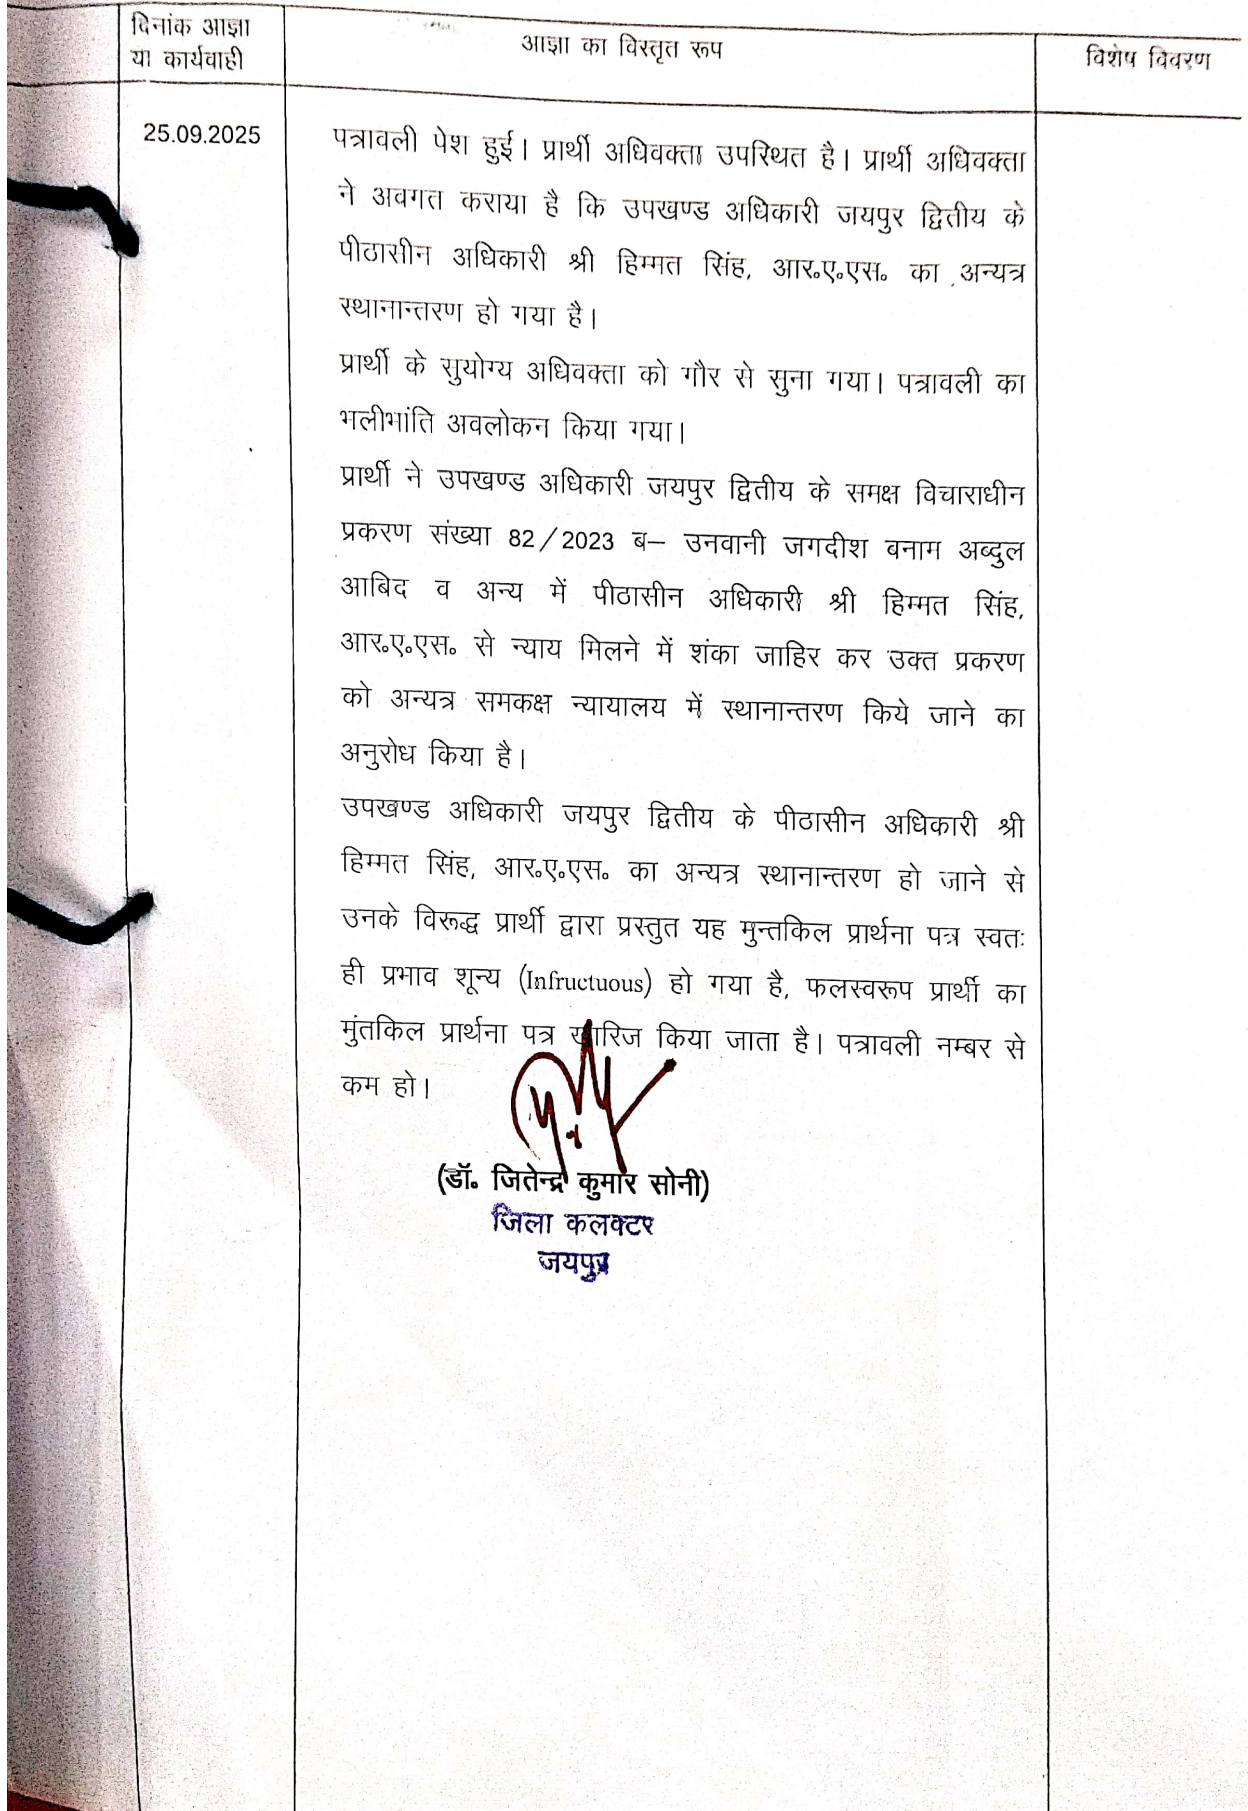 दिनांक आज्ञा
या कार्यवाही
आज्ञा का विस्तृत रूप
विशेष विवरण
25.09.2025
पत्रावली पेश हुई। प्रार्थी अधिवक्ता उपस्थित है। प्रार्थी अधिवक्ता
ने अवगत कराया है कि उपखण्ड अधिकारी जयपुर द्वितीय के
पीठासीन अधिकारी श्री हिम्मत सिंह, आर०ए०एस० का अन्यत्र
स्थानान्तरण हो गया है।
प्रार्थी के सुयोग्य अधिवक्ता को गौर से सुना गया। पत्रावली का
भलीभांति अवलोकन किया गया।
प्रार्थी ने उपखण्ड अधिकारी जयपुर द्वितीय के समक्ष विचाराधीन
प्रकरण संख्या 82/2023 ब– उनवानी जगदीश बनाम अब्दुल
आबिद व अन्य में पीठासीन अधिकारी श्री हिम्मत सिंह,
आर०ए०एस० से न्याय मिलने में शंका जाहिर कर उक्त प्रकरण
को अन्यत्र समकक्ष न्यायालय में स्थानान्तरण किये जाने का
अनुरोध किया है।
उपखण्ड अधिकारी जयपुर द्वितीय के पीठासीन अधिकारी श्री
हिम्मत सिंह, आर०ए०एस० का अन्यत्र स्थानान्तरण हो जाने से
उनके विरूद्ध प्रार्थी द्वारा प्रस्तुत यह मुन्तकिल प्रार्थना पत्र स्वतः
ही प्रभाव शून्य (Infructuous) हो गया है, फलस्वरूप प्रार्थी का
मुंतकिल प्रार्थना पत्र खारिज किया जाता है। पत्रावली नम्बर से
कम हो।
(डॉ० जितेन्द्र कुमार सोनी)
जिला कलक्टर
जयपुर